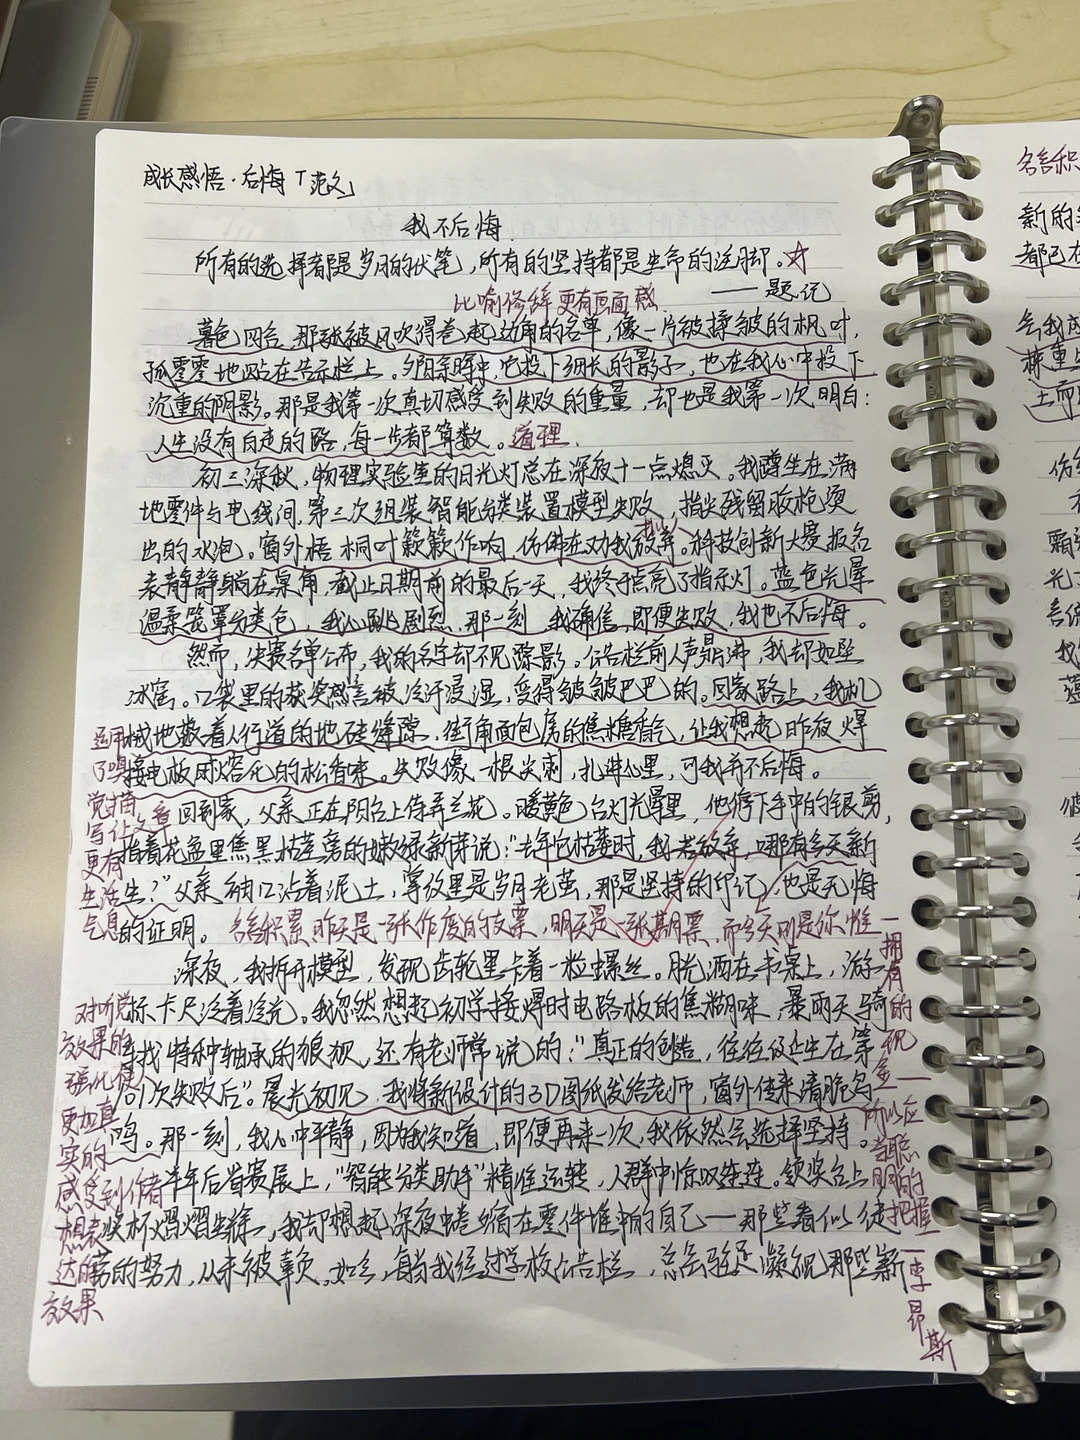 成长感悟·后悔「范文」
我不后悔
所有的选择都是岁月的伏笔，所有的坚持都是生命的注脚。☆
——题记
比喻修辞更有画面感
暮色四合，那张被风吹得卷起边角的名单，像一片被揉皱的枫叶，
孤零零地贴在告示栏上。夕阳余晖中，它投下细长的影子，也在我心中投下
沉重的阴影。那是我第一次真切感受到失败的重量，却也是我第一次明白：
人生没有白走的路，每一步都算数。道理.
初三深秋，物理实验室的日光灯总在深夜十一点熄灭。我蹲坐在满
地零件与电线间，第三次组装智能分类装置模型失败，指尖残留胶枪烫
出的水泡。窗外梧桐叶簌簌作响，仿佛在劝我放弃。科技创新大赛报名
表静静躺在桌角，截止日期前的最后一天，我终于点亮了指示灯。蓝色光晕
温柔笼罩分类仓，我心跳剧烈，那一刻，我确信，即便失败，我也不后悔。
然而，决赛名单公布，我的名字却不见踪影。公告栏前人声鼎沸，我却如坠
冰窖。口袋里的获奖感言被冷汗浸湿，变得皱皱巴巴的。回家路上，我机
械地数着人行道的地砖缝隙，街角面包房的焦糖香气，让我想起昨夜焊
接电板时熔化的松香味。失败像一根尖刺，扎进心里，可我并不后悔。
运用
了嗅
觉描
写让文章
更有
生活
气息
回到家，父亲正在阳台上侍弄兰花。暖黄色台灯光晕里，他停下手中的银剪，
指着花盆里焦黑枯茎旁的嫩绿新芽说：“去年它枯萎时，我若放弃，哪有今天新
生？”父亲袖口沾着泥土，掌纹里是岁月老茧，那是坚持的印记，也是无悔
的证明。
名言积累 昨天是一张作废的支票，明天是一张期票，而今天则是你惟一
拥有的现金——所以应当聪明的把握
—李昂斯
深夜，我拆开模型，发现齿轮里卡着一粒螺丝。月光洒在书桌上，游
标卡尺泛着冷光。我忽然想起初学接焊时电路板的焦糊味，暴雨天骑
寻找特种轴承的狼狈，还有老师常说的：“真正的创造，往往诞生在第
101次失败后”。晨光初见，我将新设计的3D图纸发给老师，窗外传来清脆鸟
鸣。那一刻，我心中平静，因为我知道，即便再来一次，我依然会选择坚持。
对听觉
效果的
强化使人
更加真
实的
感受到作者
想表
达的
效果
半年后省赛展上，“智能分类助手”精准运转，人群中惊叹连连。领奖台上
奖杯熠熠生辉，我却想起深夜中卷缩在零件堆中的自己——那些看似徒
劳的努力，从未被辜负。如今，每当我经过学校公告栏，总会驻足凝视那些新
名言积
新的
都已在